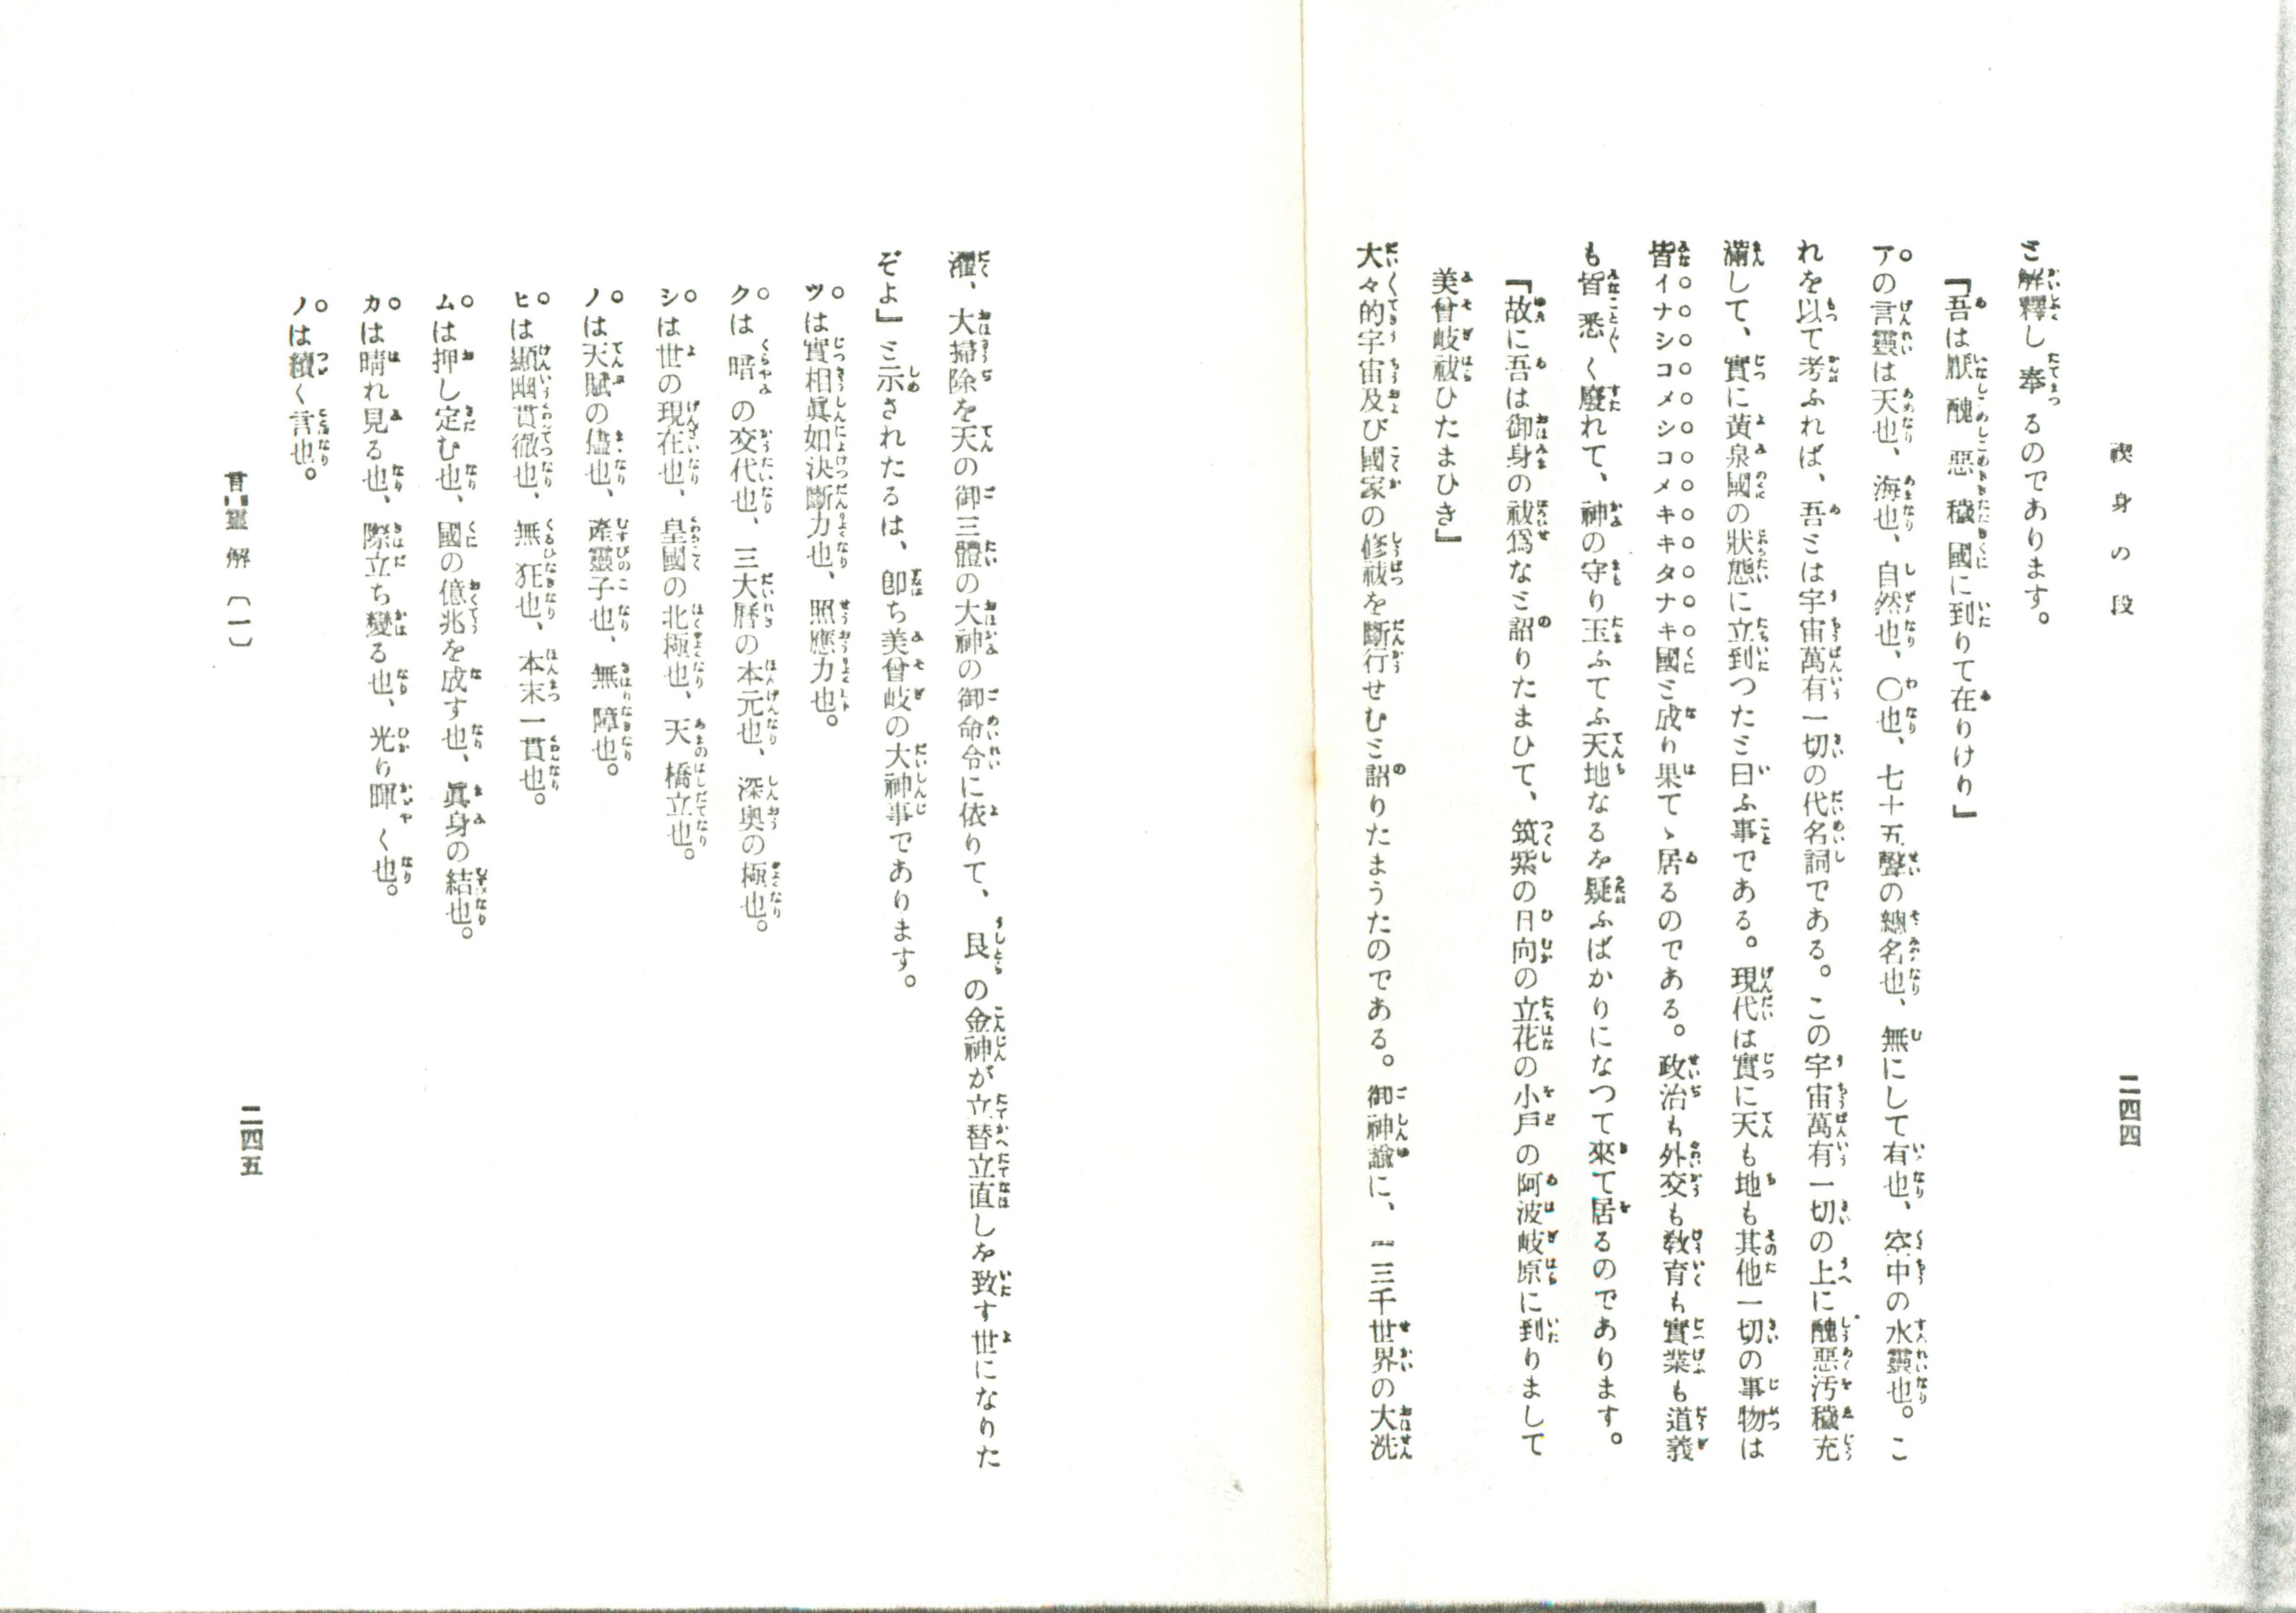 禊身の段
二四四
ミ解釋し奉るのであります。
『吾は厭醜惡穢國に到りて在りけり』
アの言靈は天也、海也、自然也、〇也、七十五聲の總名也、無にして有也、空中の水靈也。こ
れを以て考ふれば、吾ミは宇宙萬有一切の代名詞である。この宇宙萬有一切の上に醜惡汚穢充
滿して、實に黃泉國の狀態に立到つたミ曰ふ事である。現代は實に天も地も其他一切の事物は
皆イナシコメシコメキキタナキ國ミ成り果てゝ居るのである。政治も外交も敎育も實業も道義
も皆悉く廢れて、神の守り玉ふてふ天地なるを疑ふばかりになつて來て居るのであります。
『故に吾は御身の祓爲なミ詔りたまひて、筑紫の日向の立花の小戸の阿波岐原に到りまして
美曾岐祓ひたまひき』
大々的宇宙及び國家の修祓を斷行せむミ詔りたまうたのである。御神諭に、「三千世界の大洗
濯、大掃除を天の御三體の大神の御命令に依りて、艮の金神が立替立直しを致す世になりた
ぞよ」ミ示されたるは、卽ち美曾岐の大神事であります。
ツは實相眞如決斷力也、照應力也。
クは暗の交代也、三大曆の本元也、深奧の極也。
シは世の現在也、皇國の北極也、天橋立也。
ノは天賦の儘也、產靈子也、無障也。
ヒは顯幽貫徹也、無狂也、本末一貫也。
ムは押し定む也、國の億兆を成す也、眞身の結也。
カは晴れ見る也、際立ち變る也、光り暉く也。
ノは續く言也。
言靈解〔一〕
二四五